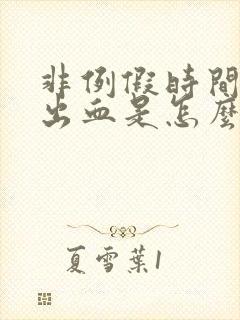 非例假時間
出血是怎麼
夏雪葉1